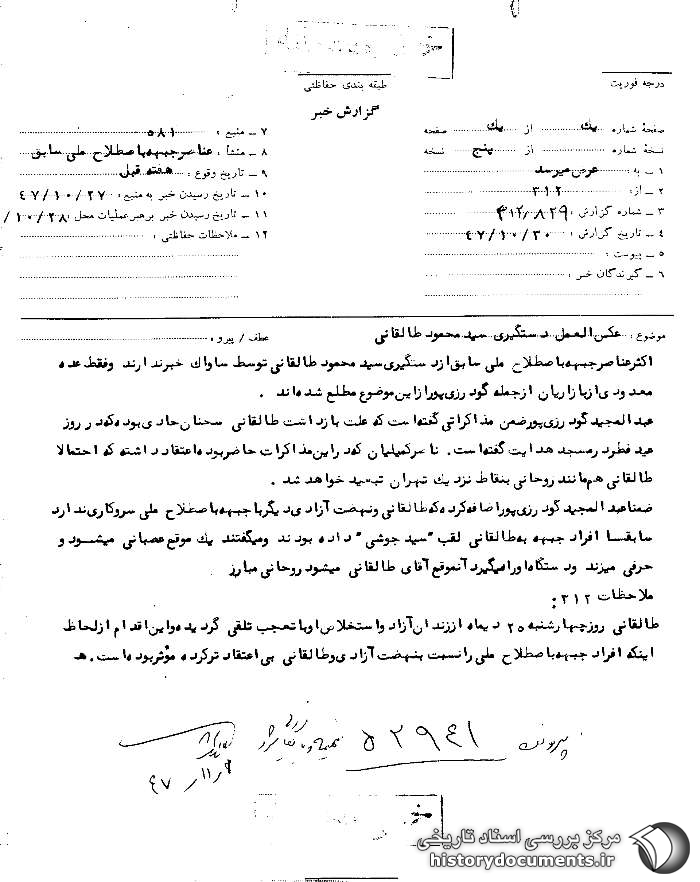 درجه فوریت
طبقه بندی حفاظتی
گزارش خبر
صفحهٔ شماره یك از یك صفحه
نسخهٔ شماره از پنج نسخه
۱ ـ به : عرض میرسد
۲ ـ از : ۳۱۲
۳ ـ شماره گزارش : ۳۱۲/۸۲۹
۴ ـ تاریخ گزارش : ۴۷/۱۰/۳۰
۵ ـ پیوست :
۶ ـ گیرندگان خبر :
۷ ـ منبع : ۵۸۱
۸ ـ منشأ : عناصر جبهه باصطلاح ملی سابق
۹ ـ تاریخ وقوع : هفته قبل
۱۰ ـ تاریخ رسیدن خبر به منبع : ۴۷/۱۰/۲۷
۱۱ ـ تاریخ رسیدن خبر برهبر عملیات محل : /۱۰/۲۸
۱۲ ـ ملاحظات حفاظتی :
موضوع : عکس العمل دستگیری سید محمود طالقانی
عطف / پیرو :
اکثر عناصر جبهه باصطلاح ملی سابق از دستگیری سید محمود طالقانی توسط ساواك خبر ندارند وفقط عده
معدودی از بازاریان ازجمله گودرزی پور از این موضوع مطلع شده اند .
عبدالمجید گودرزی پور ضمن مذاکراتی گفته است که علت بازداشت طالقانی سخنان حادی بوده که در روز
عید فطر در مسجد هدایت گفته است. ناصر کمیلیان که در این مذاکرات حاضر بوده اعتقاد داشته که احتمالا
طالقانی هم مانند روحانی بنقاط نزدیك تهران تبعید خواهد شد .
ضمنا عبدالمجید گودرزی پور اضافه کرده که طالقانی ونهضت آزادی دیگر با جبهه باصطلاح ملی سروکاری ندارد
سابقا افراد جبهه به طالقانی لقب "سید جوشی" داده بودند ومیگفتند یك موقع عصبانی میشود و
حرفی میزند ودستگاه اورا میگیرد آنموقع آقای طالقانی میشود روحانی مبارز
ملاحظات ۳۱۲ :
طالقانی روز چهارشنبه ۲۵ دیماه اززندان آزاد واستخلاص او با تعجب تلقی گردیده واین اقدام از لحاظ
اینکه افراد جبهه باصطلاح ملی را نسبت بنهضت آزادی وطالقانی بی اعتقاد تر کرده مؤثر بوده است. هـ
پرونده ۵۲۹۴۱
۴۷/۱۱/۹
مرکز بررسی اسناد تاریخی
historydocuments.ir